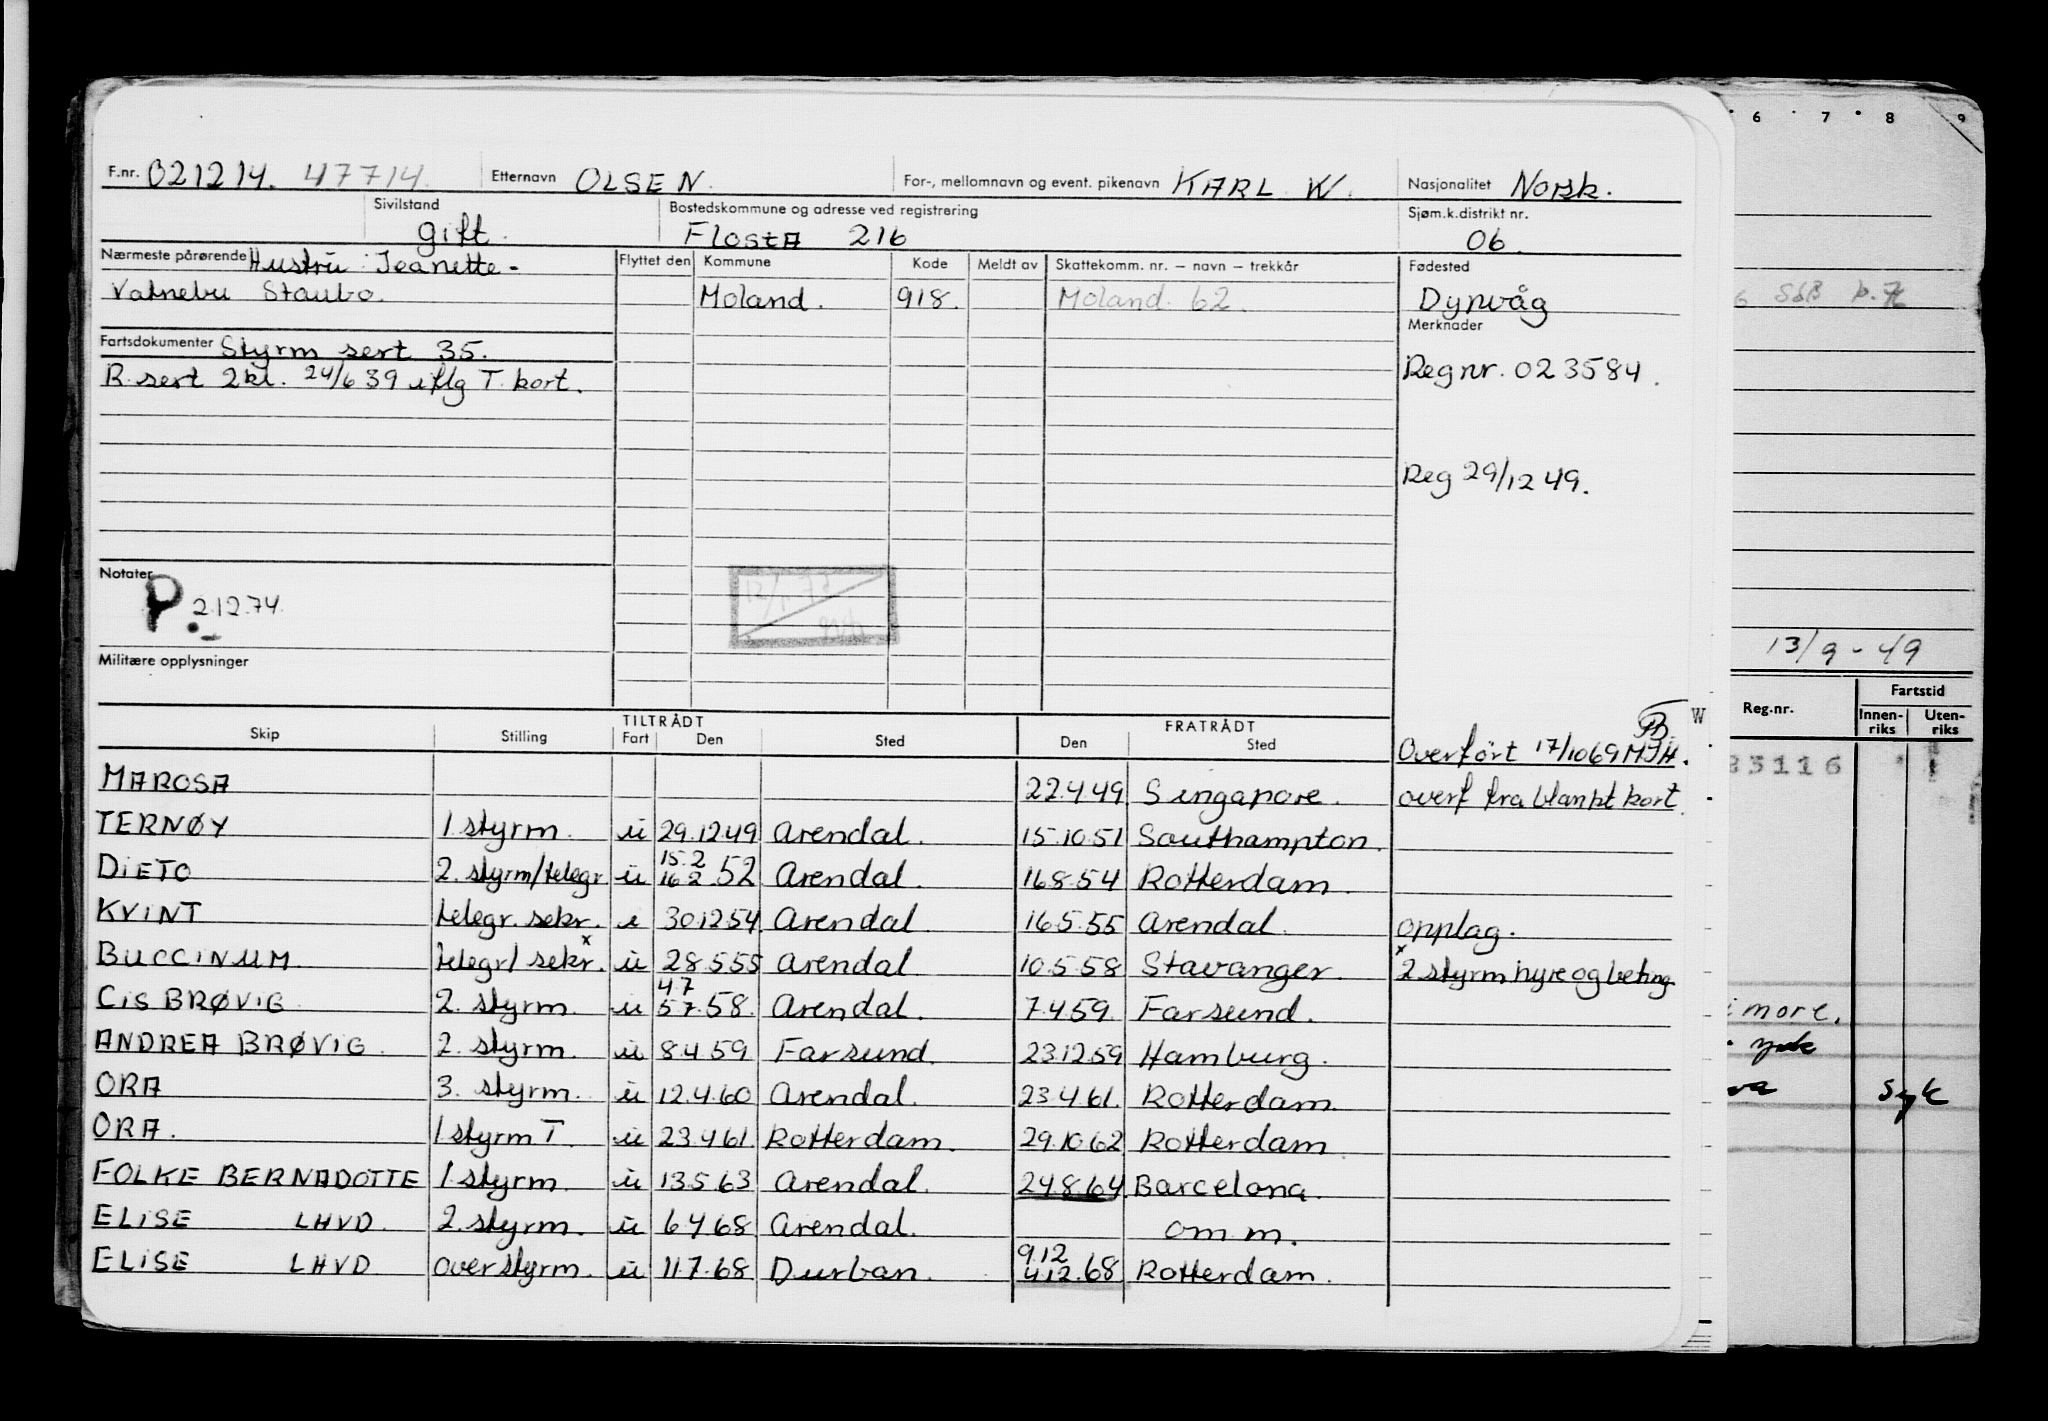 F.nr. 021214. 47714. Etternavn OLSEN. For-, mellomnavn og event. pikenavn KARL W. Nasjonalitet Norsk.
Sivilstand gift. Bostedskommune og adresse ved registrering Flosta 216 Sjøm.k.distrikt nr. 06.
Nærmeste pårørende Hustru: Jeanette - Flyttet den Kommune Kode Meldt av Skattekomm. nr. – navn – trekkår Fødested
Vatnebu Staubo. Moland. 918. Moland. 62. Dypvåg
Merknader
Fartsdokumenter Styrm sert 35.
R. sert 2kl. 24/6 39 iflg T. kort. Reg nr. 023584.
Reg 29/12 49.
Notater
P. 2.12.74.
Militære opplysninger
TILTRÅDT FRATRÅDT
Skip Stilling Fart Den Sted Den Sted Overført 17/1069 MJH.
MAROSA 22.4.49 Singapore. overf fra blankt kort
TERNØY 1. styrm. u 29.12.49 Arendal. 15.10.51 Southampton.
15.2
DIETO 2. styrm/telegr u 16.2.52 Arendal. 16.8.54 Rotterdam.
KVINT telegr. sekr. i 30.12.54 Arendal 16.5.55 Arendal. opplag.
BUCCINUM telegr/sekr.x u 28.5.55 Arendal 10.5.58 Stavanger. x 2 styrm hyre og beting
4.7
CIS BRØVIG 2. styrm. u 5.7.58. Arendal. 7.4.59. Farsund.
ANDREA BRØVIG. 2. styrm. u 8.4.59 Farsund. 23.12.59 Hamburg.
ORA 3. styrm. u 12.4.60 Arendal. 23.4.61. Rotterdam.
ORA. 1 styrm T. u 23.4.61. Rotterdam. 29.10.62 Rotterdam
FOLKE BERNADOTTE 1. styrm. u 13.5.63 Arendal. 24.8.64 Barcelona.
ELISE LHVD. 2. styrm. u 6.4.68 Arendal. om m.
9.12
ELISE LHVD overstyrm. u 11.7.68 Durban. 4.12.68 Rotterdam.
W
6 7 8 9
13/9 - 49
Reg.nr. Fartstid
Innen-riks Uten-riks
83116
syk